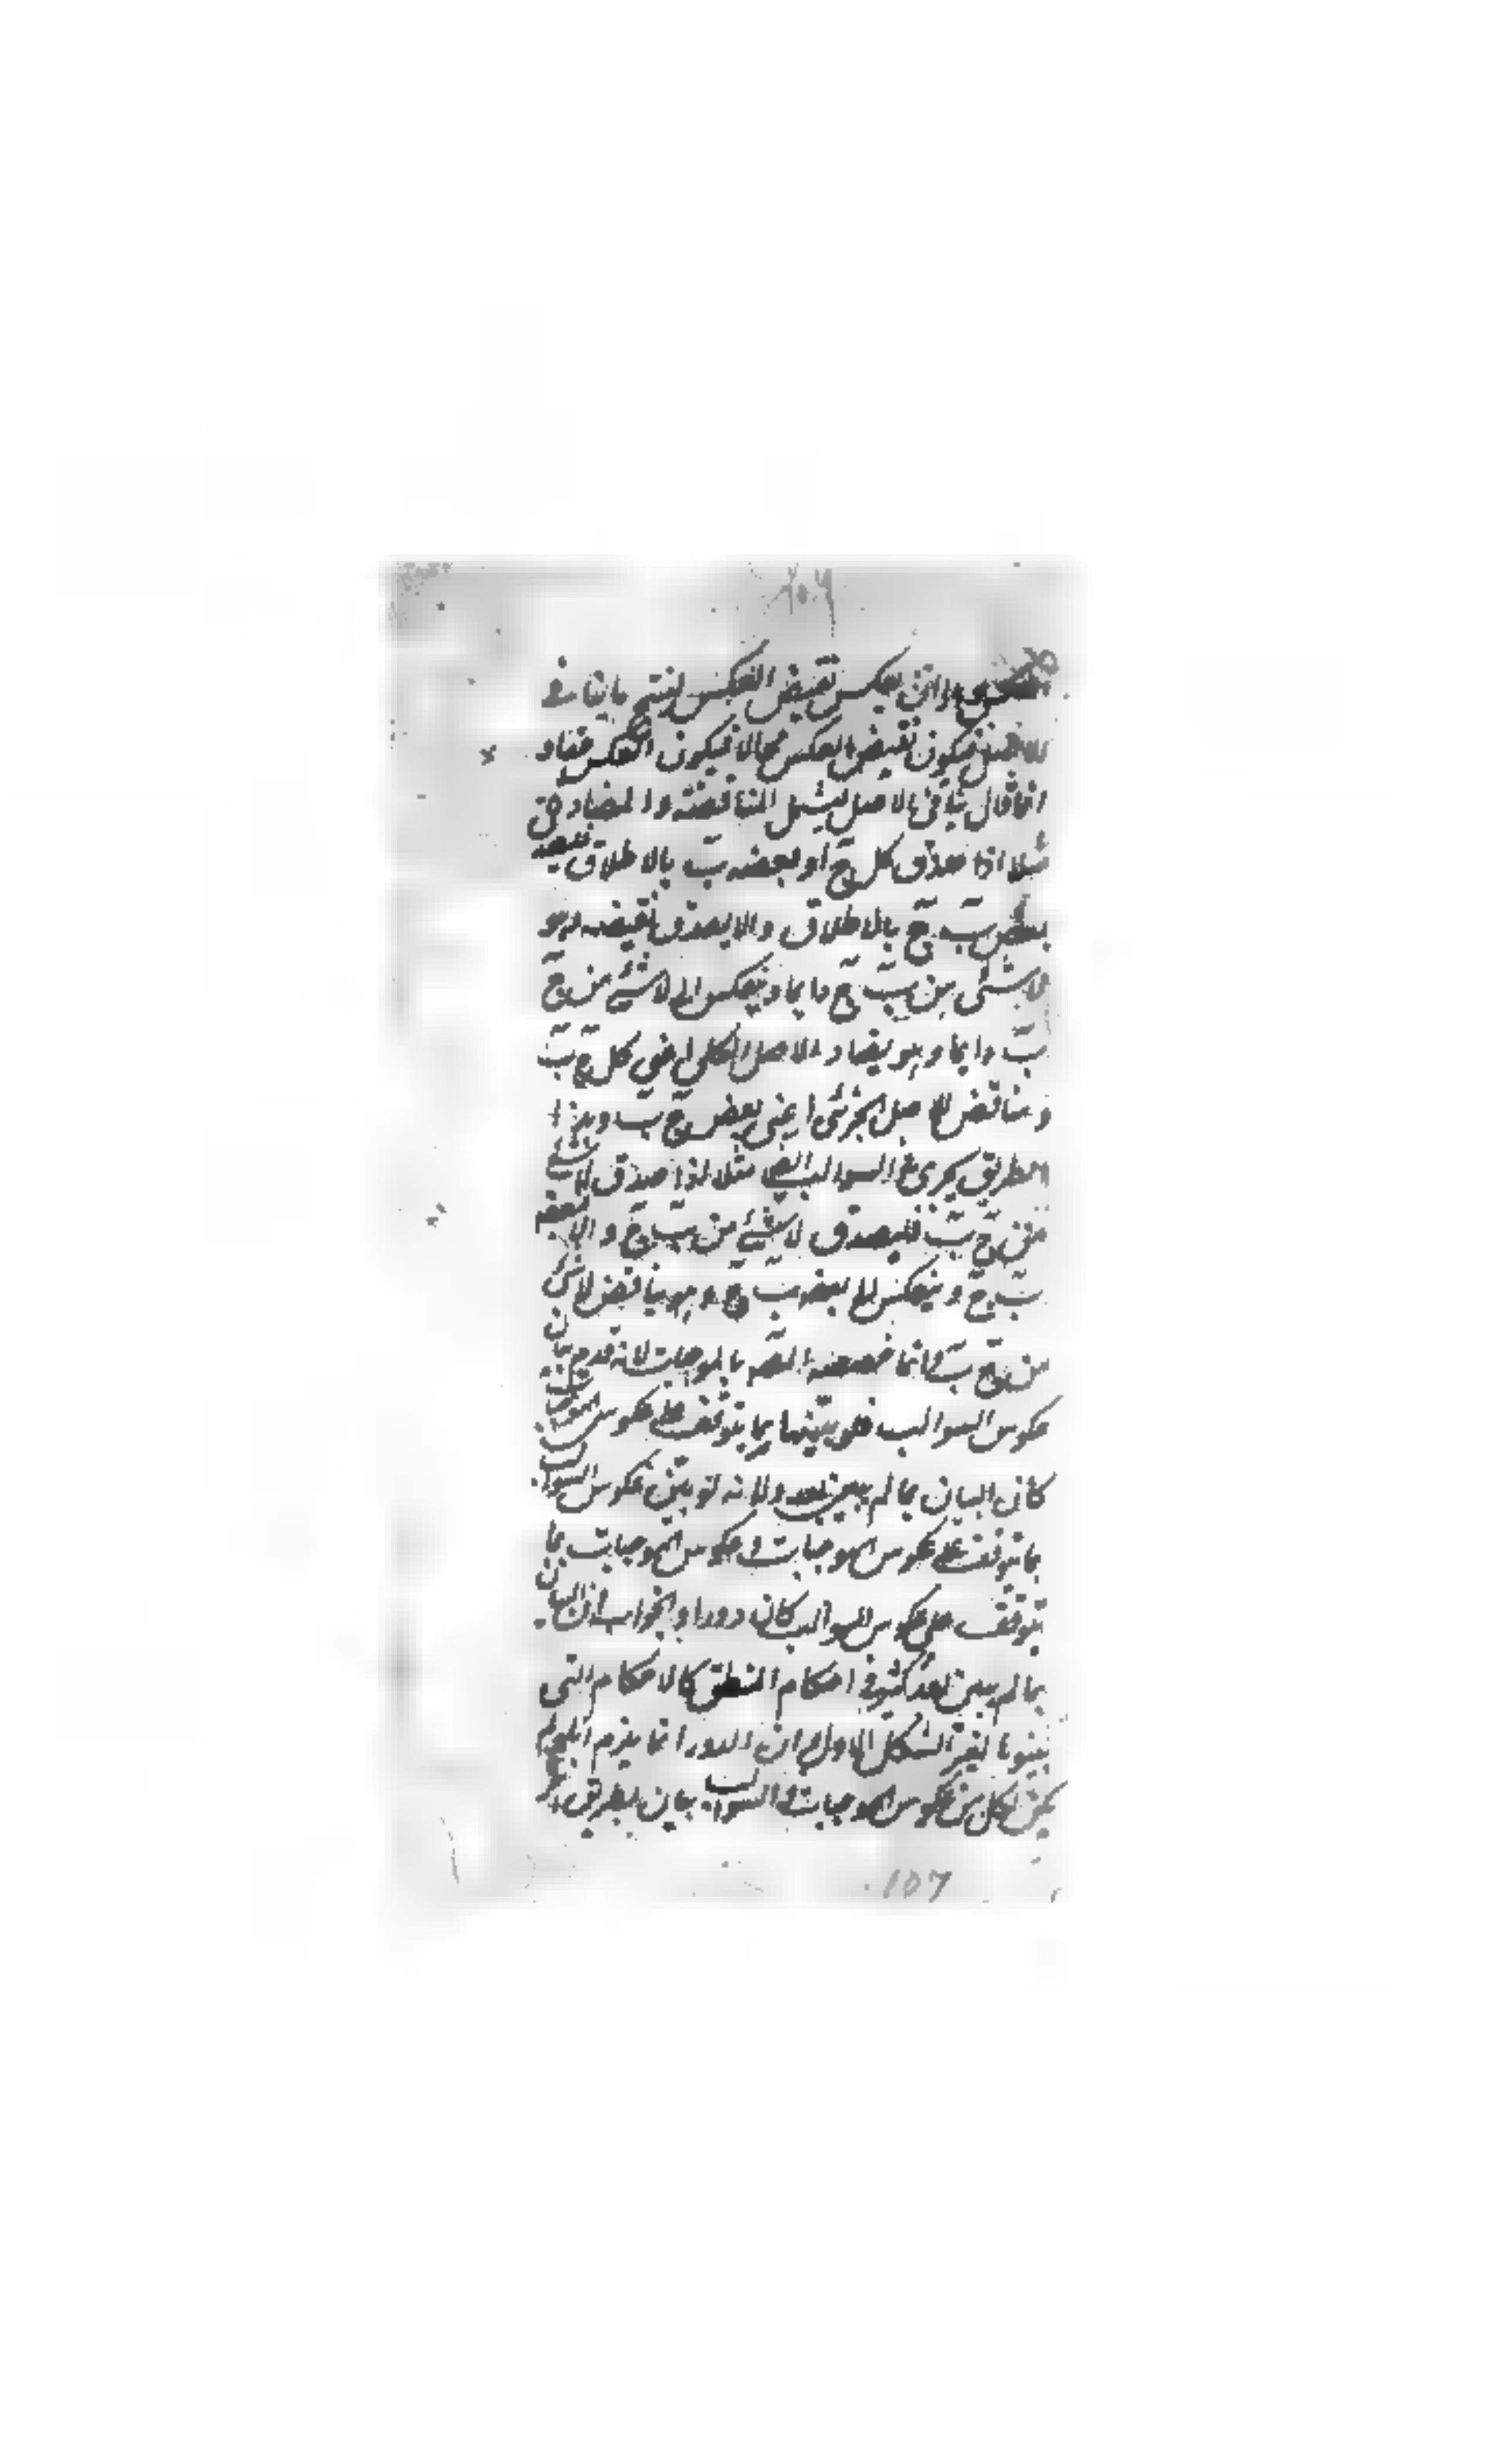 العكس وان يعكس نقيض العكس لينتج ما ينافى
للاصل فيكون نقيض العكس محالا فيكون العكس حقا و
انما قال ينافى الاصل ليشمل المناقضة والمضاد حتى
مثلا اذا صدق كل ج او بعضه ب بالاطلاق فليصدق
بعض ب ج بالاطلاق والا يصدق نقيضه وهو
لا شئ من ب ج دايما وينعكس الى لا شئ من ج
ب دايما وهو يضاد الاصل الكلي اعني كل ج ب
ومناقض للاصل الجزئى اعنى بعض ج ب وهذا
الطريق يجرى فى السوالب ايضا مثلا اذا صدق لا شئ
من ج ب فليصدق لا شئ من ب ج والا لبعض
ب ج وينعكس الى بعض ب ج وهو يناقض لا شئ
من ج ب وانما خصصه المصنف بالموجبات لانه قدم بيان
عكوس السوالب فلو بينها بما يتوقف على عكوس الموجبات
كان البيان بما لم يبين بعد ولانه لو بين عكوس السوالب
بما يتوقف على عكوس الموجبات وعكوس الموجبات بما
يتوقف على عكوس السوالب كان دورا والجواب ان البيان
بما لم يبين بعد كثير فى احكام المنطق كالاحكام التى
بينوها لغير الشكل الاول وان الدور انما يلزم لو لم
يكن لكل من عكوس الموجبات والسوالب بيان بطريق اخر
107